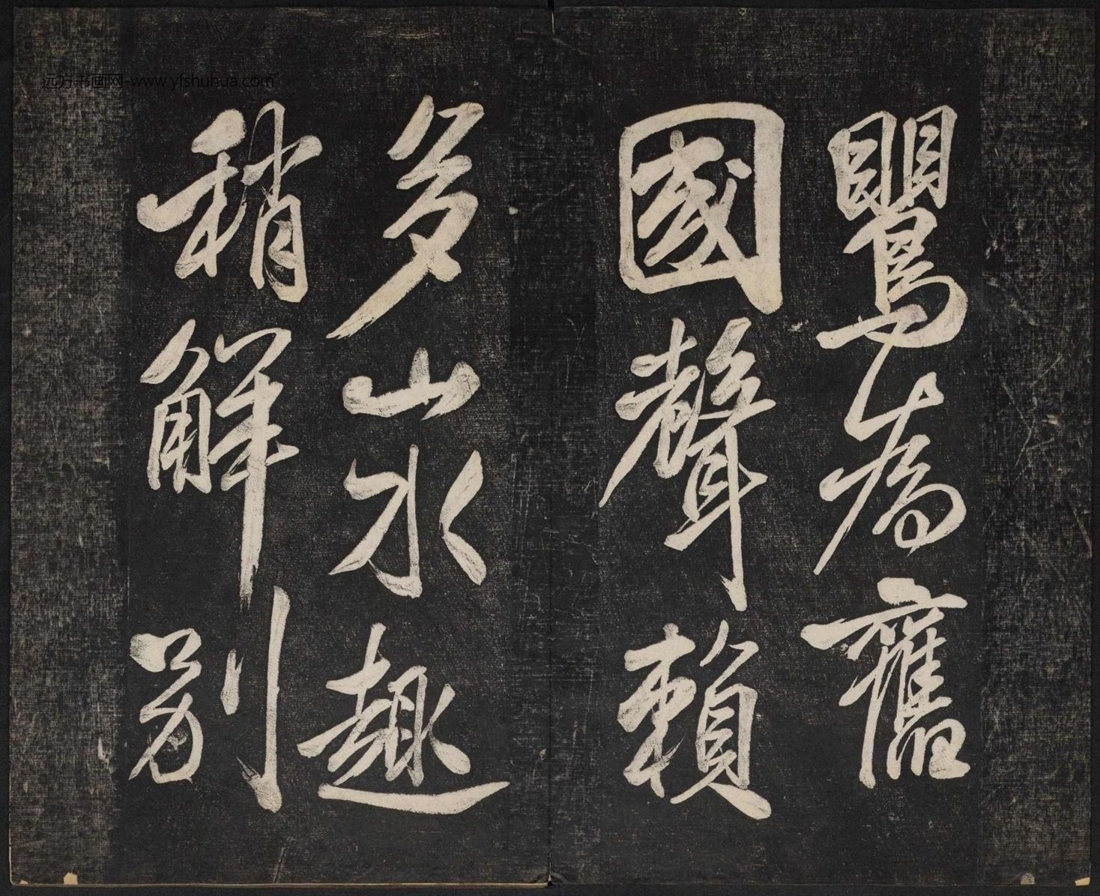 远方书画网-www.yfshuhua.com
鸎為舊
國聲賴
多山水趣
稍解別